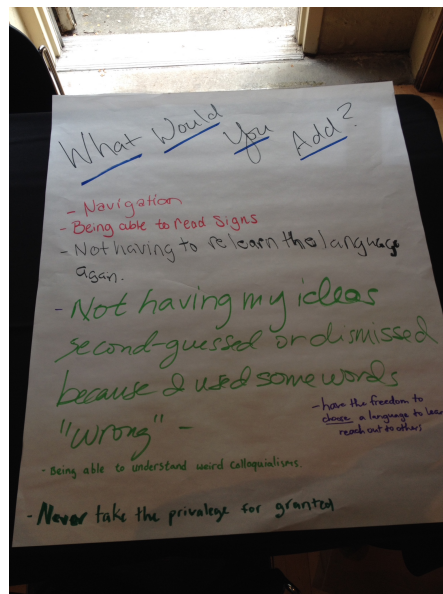 What Would You Add?
- Navigation
- Being able to read Signs
- Not having to relearn the language
again.
- Not having my ideas
second-guessed or dismissed
because I used some words
"wrong" -
- have the freedom to
choose a language to learn
reach out to others
- Being able to understand weird colloquialisms.
- Never take the privalege for granted